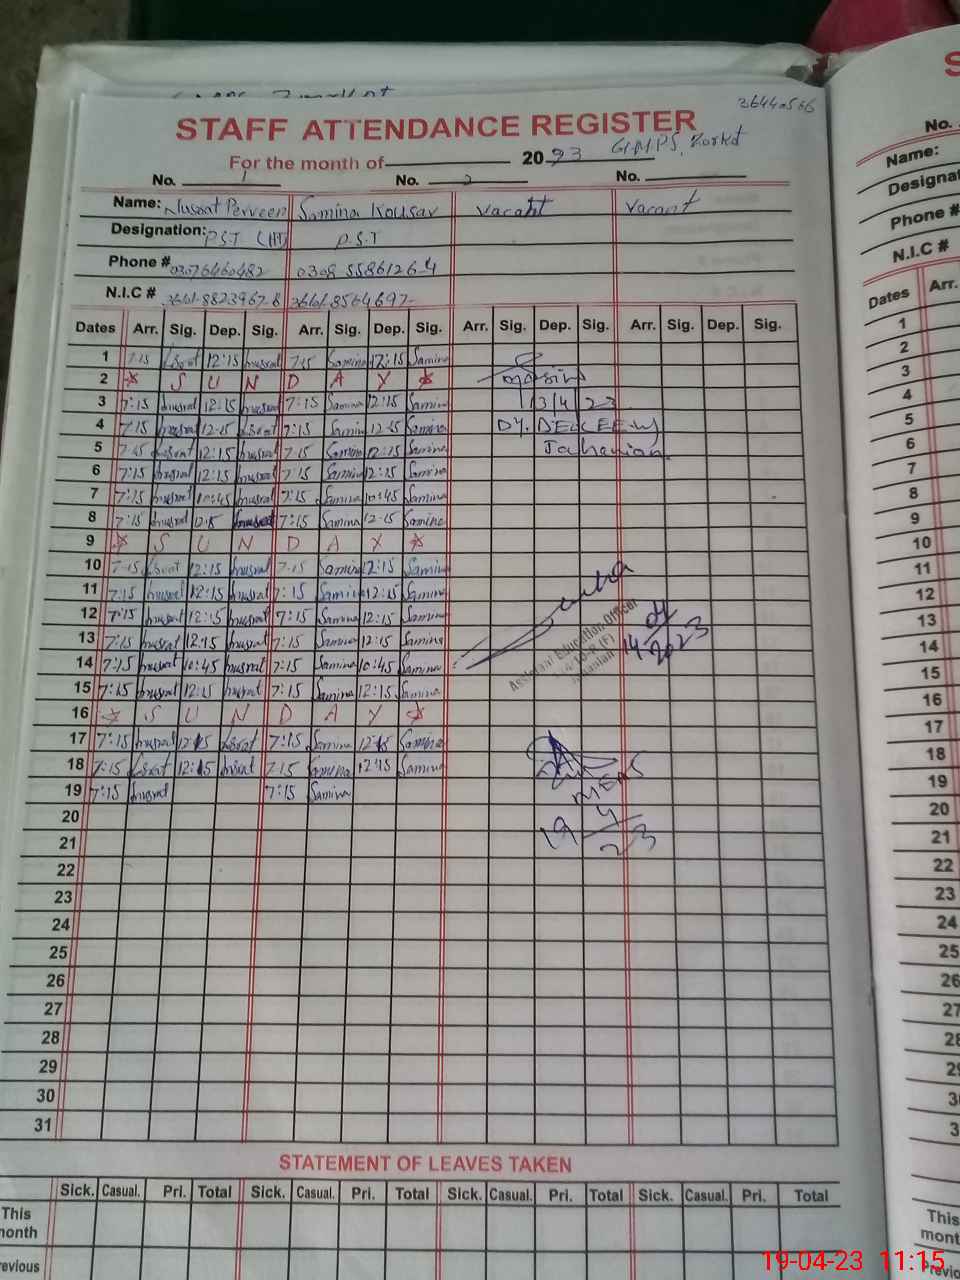 36440566
STAFF ATTENDANCE REGISTER
For the month of 2023 G.M.P.S,
No. 1 No. 2 No.
Name: Nusrat Perveen Samina Kousar Vacant Vacant
Designation: PST (HT) P.S.T
Phone # 03076460482 0308 5586126 4
N.I.C #
Dates Arr. Sig. Dep. Sig. Arr. Sig. Dep. Sig. Arr. Sig. Dep. Sig. Arr. Sig. Dep. Sig.
1 7:15 12:15 nusrat 7:15 Samina 12:15 Samina
2 * S U N D A Y *
3 7:15 nusrat 12:15 nusrat 7:15 Samina 12:15 Samina 13/4/23
4 7:15 nusrat 12:15 7:15 Samina 12:15 Samina Dy. DEO
5 7:15 12:15 nusrat 7:15 Samina 12:15 Samina Jahanian
6 7:15 nusrat 12:15 nusrat 7:15 Samina 12:15 Samina
7 7:15 nusrat 10:45 nusrat 7:15 Samina 10:45 Samina
8 7:15 nusrat 12:15 nusrat 7:15 Samina 12:15 Samina
9 * S U N D A Y *
10 7:15 12:15 nusrat 7:15 Samina 12:15 Samina
11 7:15 nusrat 12:15 nusrat 7:15 Samina 12:15 Samina
12 7:15 nusrat 12:15 nusrat 7:15 Samina 12:15 Samina
13 7:15 nusrat 12:15 nusrat 7:15 Samina 12:15 Samina
Assistant Education Officer
Jahanian
14 04 2023
14 7:15 nusrat 10:45 nusrat 7:15 Samina 10:45 Samina
15 7:15 nusrat 12:15 nusrat 7:15 Samina 12:15 Samina
16 * S U N D A Y *
17 7:15 nusrat 12:15 7:15 Samina 12:15 Samina
18 7:15 12:15 7:15 Samina 12:15 Samina
19 7:15 nusrat 7:15 Samina
19 4 23
20
21
22
23
24
25
26
27
28
29
30
31
STATEMENT OF LEAVES TAKEN
Sick. Casual. Pri. Total Sick. Casual. Pri. Total Sick. Casual. Pri. Total Sick. Casual. Pri. Total
This
month
evious
S
No.
Name:
Designat
Phone #
N.I.C #
Dates Arr.
1
2
3
4
5
6
7
8
9
10
11
12
13
14
15
16
17
18
19
20
21
22
23
24
25
26
27
28
29
3
3
This
mont
Previo
19-04-23 11:15